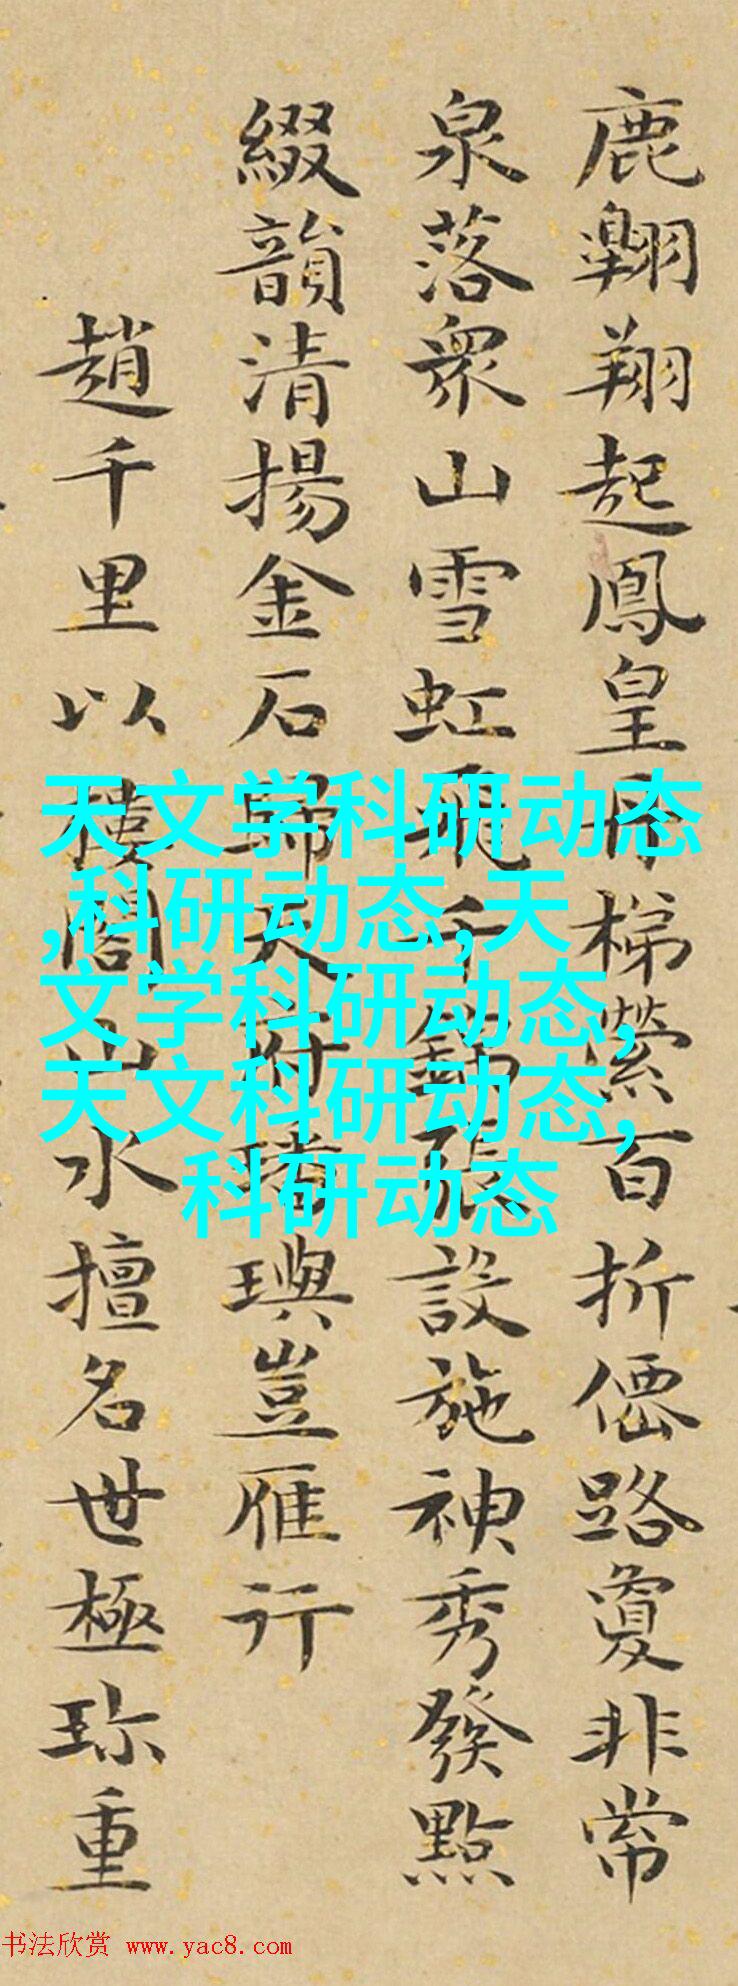 鹿翱翔起鳳皇丹梯縈百折僊路敻非常
泉落衆山雪虹飛千張設施神秀發點
綴韻清揚金石歸天府璵豈雁行
趙千里以樓閣山水擅名世極珎重
天文学科研动态
,科研动态,天
文学科研动态,
天文科研动态,
科研动态
书法欣赏 www.yac8.com